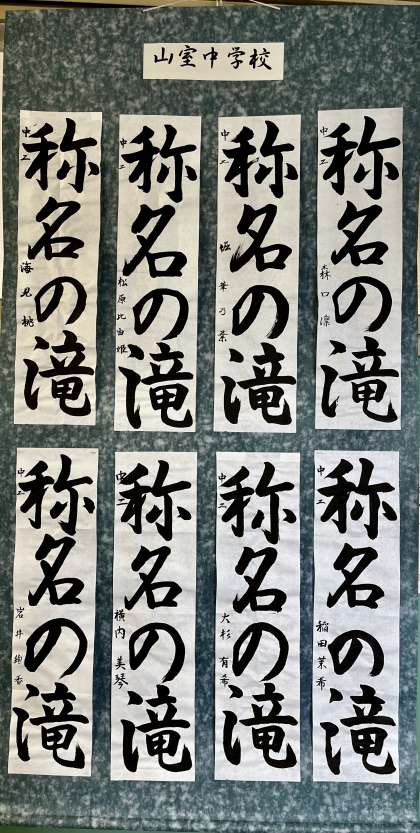 山室中学校
称名の滝
中二 森口凛
称名の滝
中二 堀 華乃葉
称名の滝
中二 松原比由姫
称名の滝
中二 海見桃
称名の滝
中二 稲田茉希
称名の滝
中二 大杉有希
称名の滝
中二 横内美琴
称名の滝
中二 岩井絢香